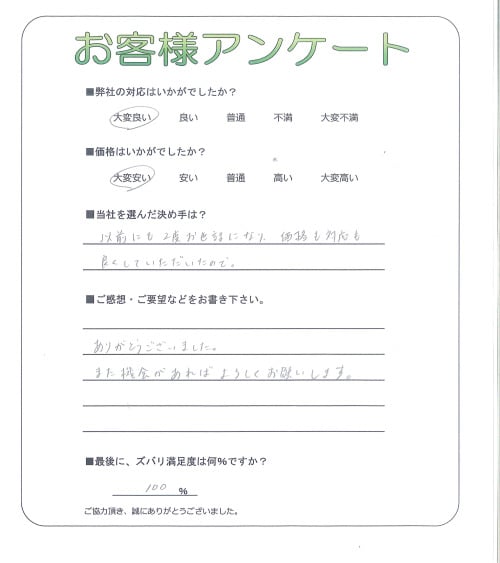 お客様アンケート
■弊社の対応はいかがでしたか？
大変良い 良い 普通 不満 大変不満
■価格はいかがでしたか？
大変安い 安い 普通 高い 大変高い
■当社を選んだ決め手は？
以前にも2度お世話になり、価格も対応も
良くしていただいたので。
■ご感想・ご要望などをお書き下さい。
ありがとうございました。
また機会があればよろしくお願いします。
■最後に、ズバリ満足度は何％ですか？
100 ％
ご協力頂き、誠にありがとうございました。